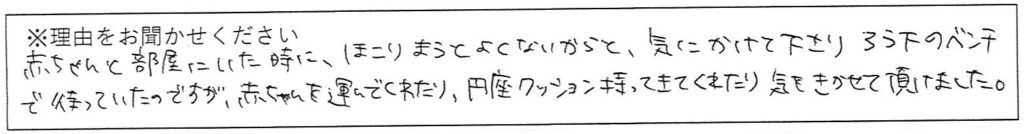 ※理由をお聞かせください
赤ちゃんと部屋にいた時に、ほこりまうとよくないからと、気にかけて下さり ろう下のベンチ
で待っていたのですが、赤ちゃんを運んでくれたり、円座クッション持ってきてくれたり気をきかせて頂けました。